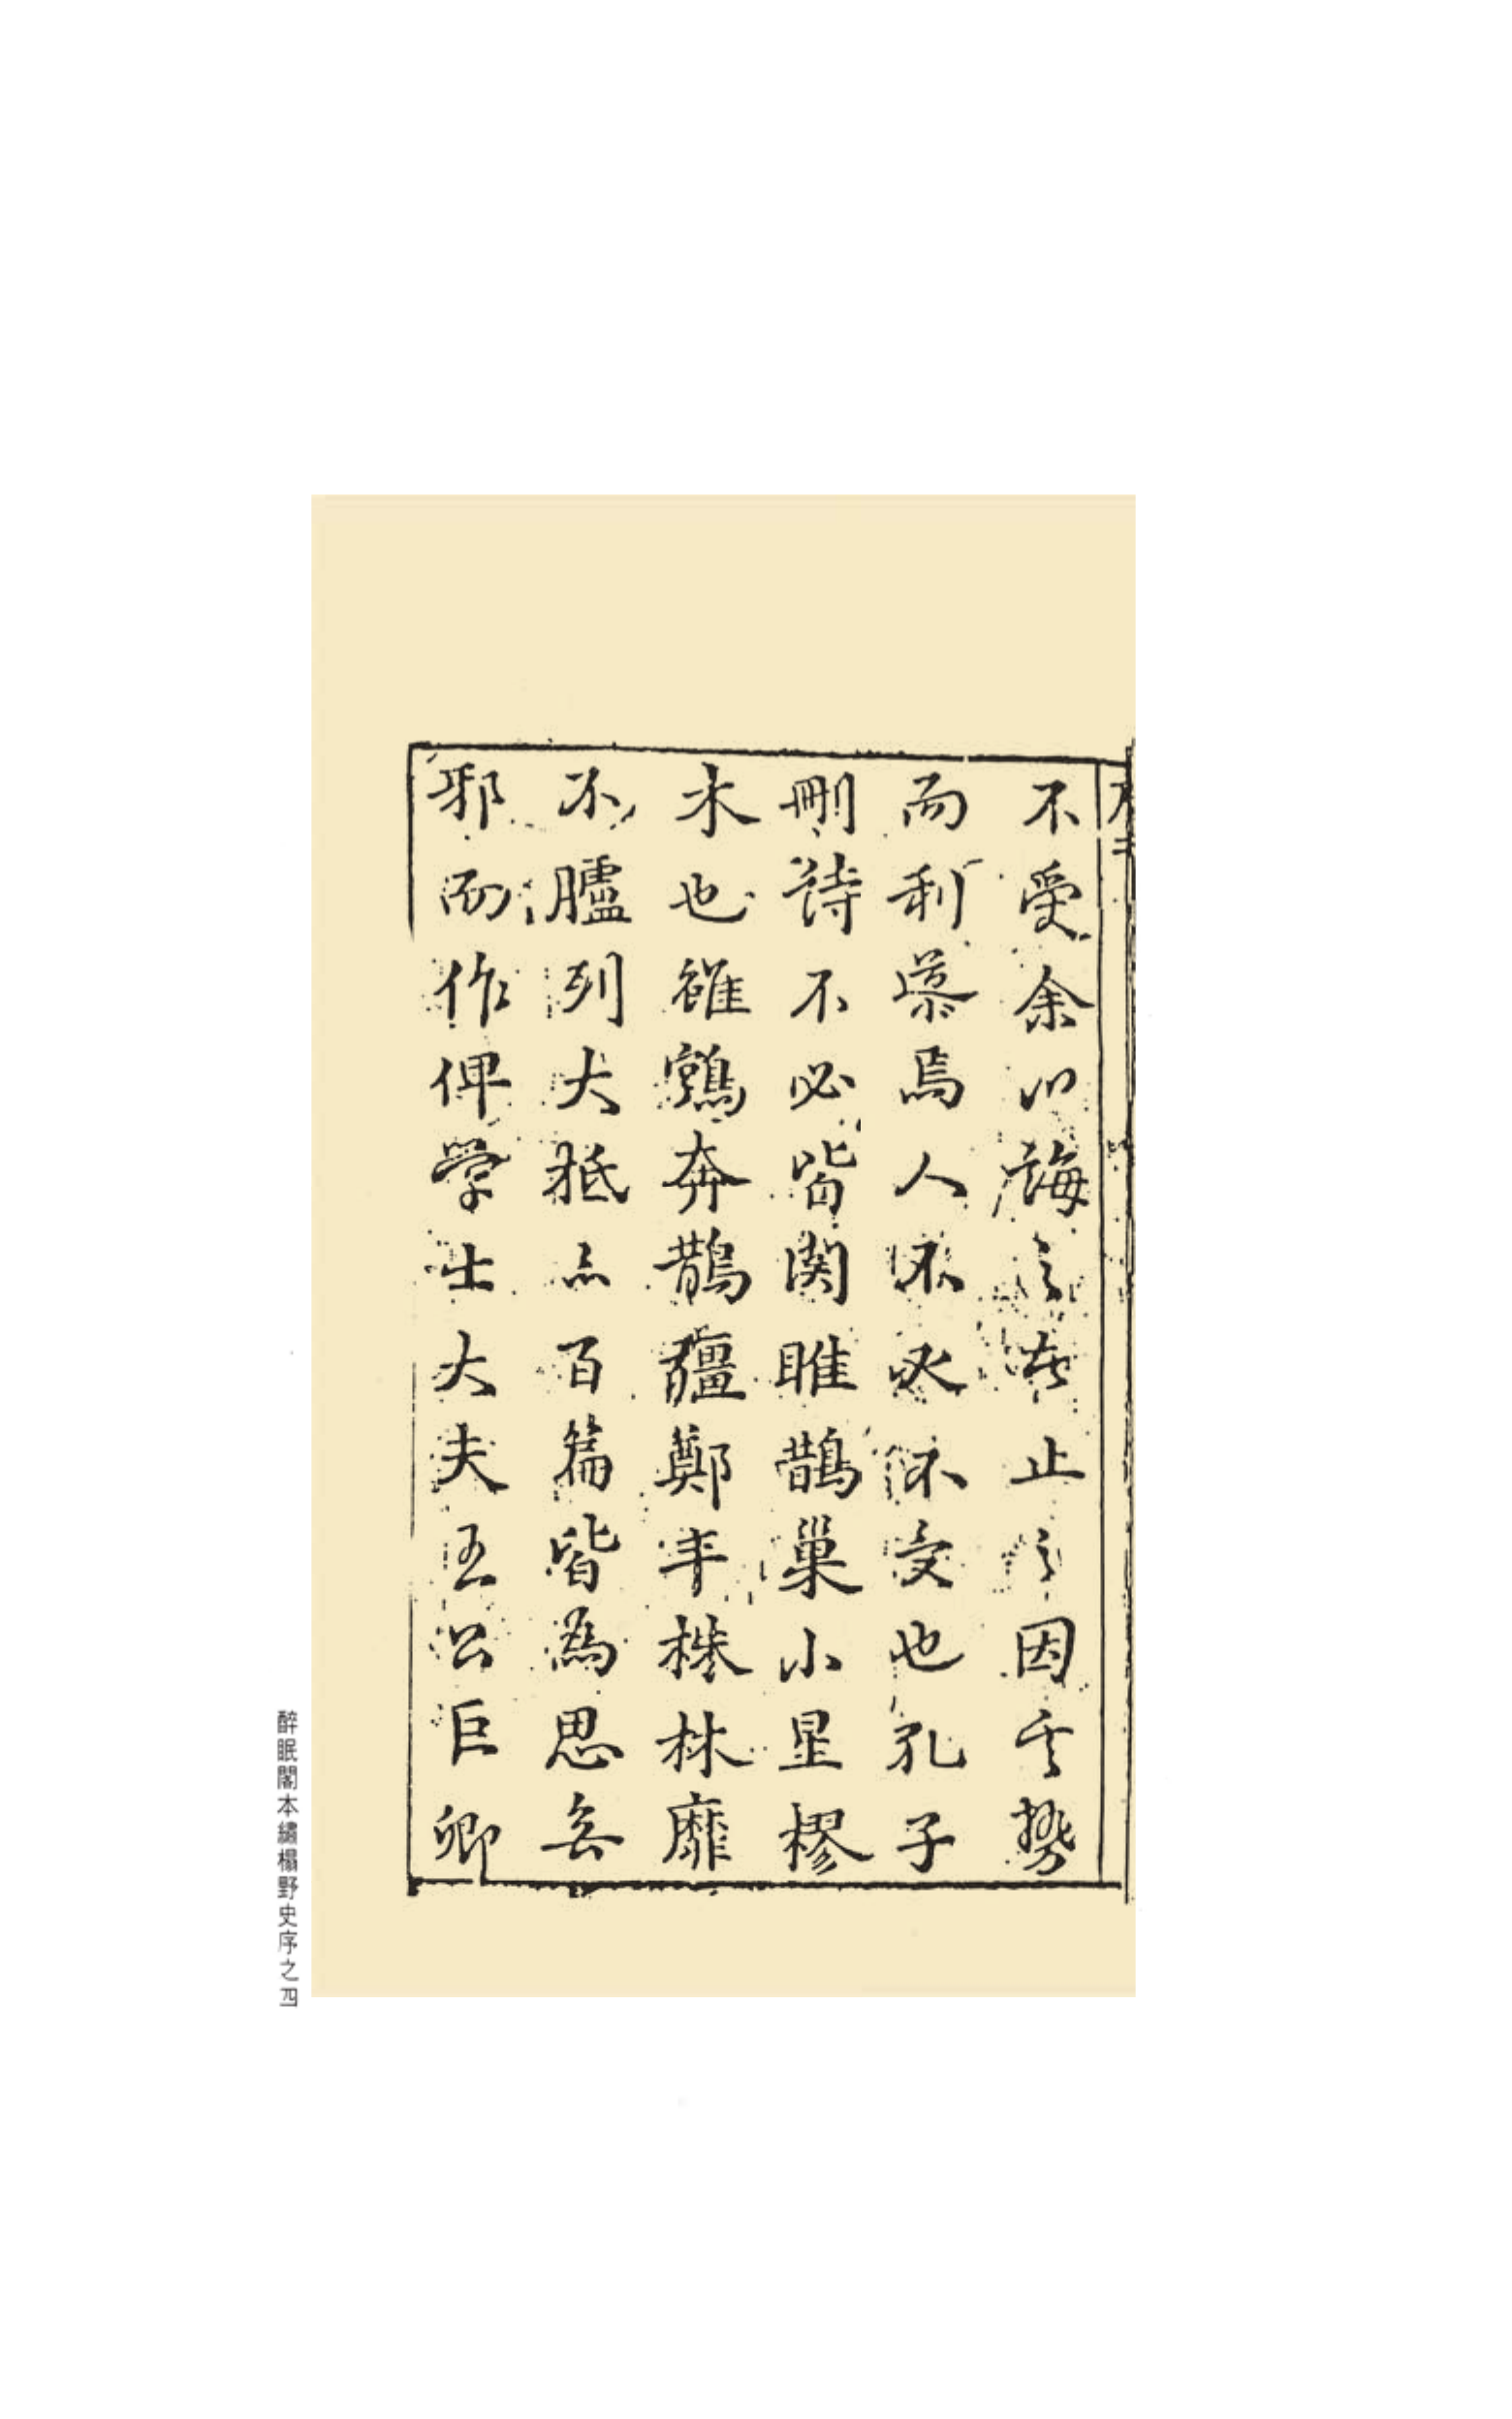 不受余以誨之者止之因其勢
而利導焉人不必不受也孔子
刪詩不必皆関雎鵲巢小星樛
木也雖鶉奔鵲彊鄭丰株林靡
不臚列大抵亦百篇皆為思無
邪而作俾学士大夫王公巨卿
醉眠閣本繡榻野史序之四